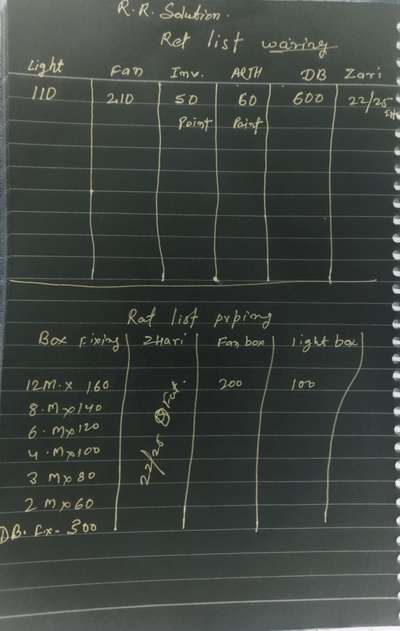 R.R. Solution.
Ret list waring
Light Fan Inv. ARTH DB Zari
110 210 50 60 600 22/25
Point Point
Rat list prping
Box Fixing Zhari Fan box light box
12 M. x 160 200 100
8. M x 140
6. M x 120
4. M x 100
3 M x 80
2 M x 60
22/25
DB. Fx- 500